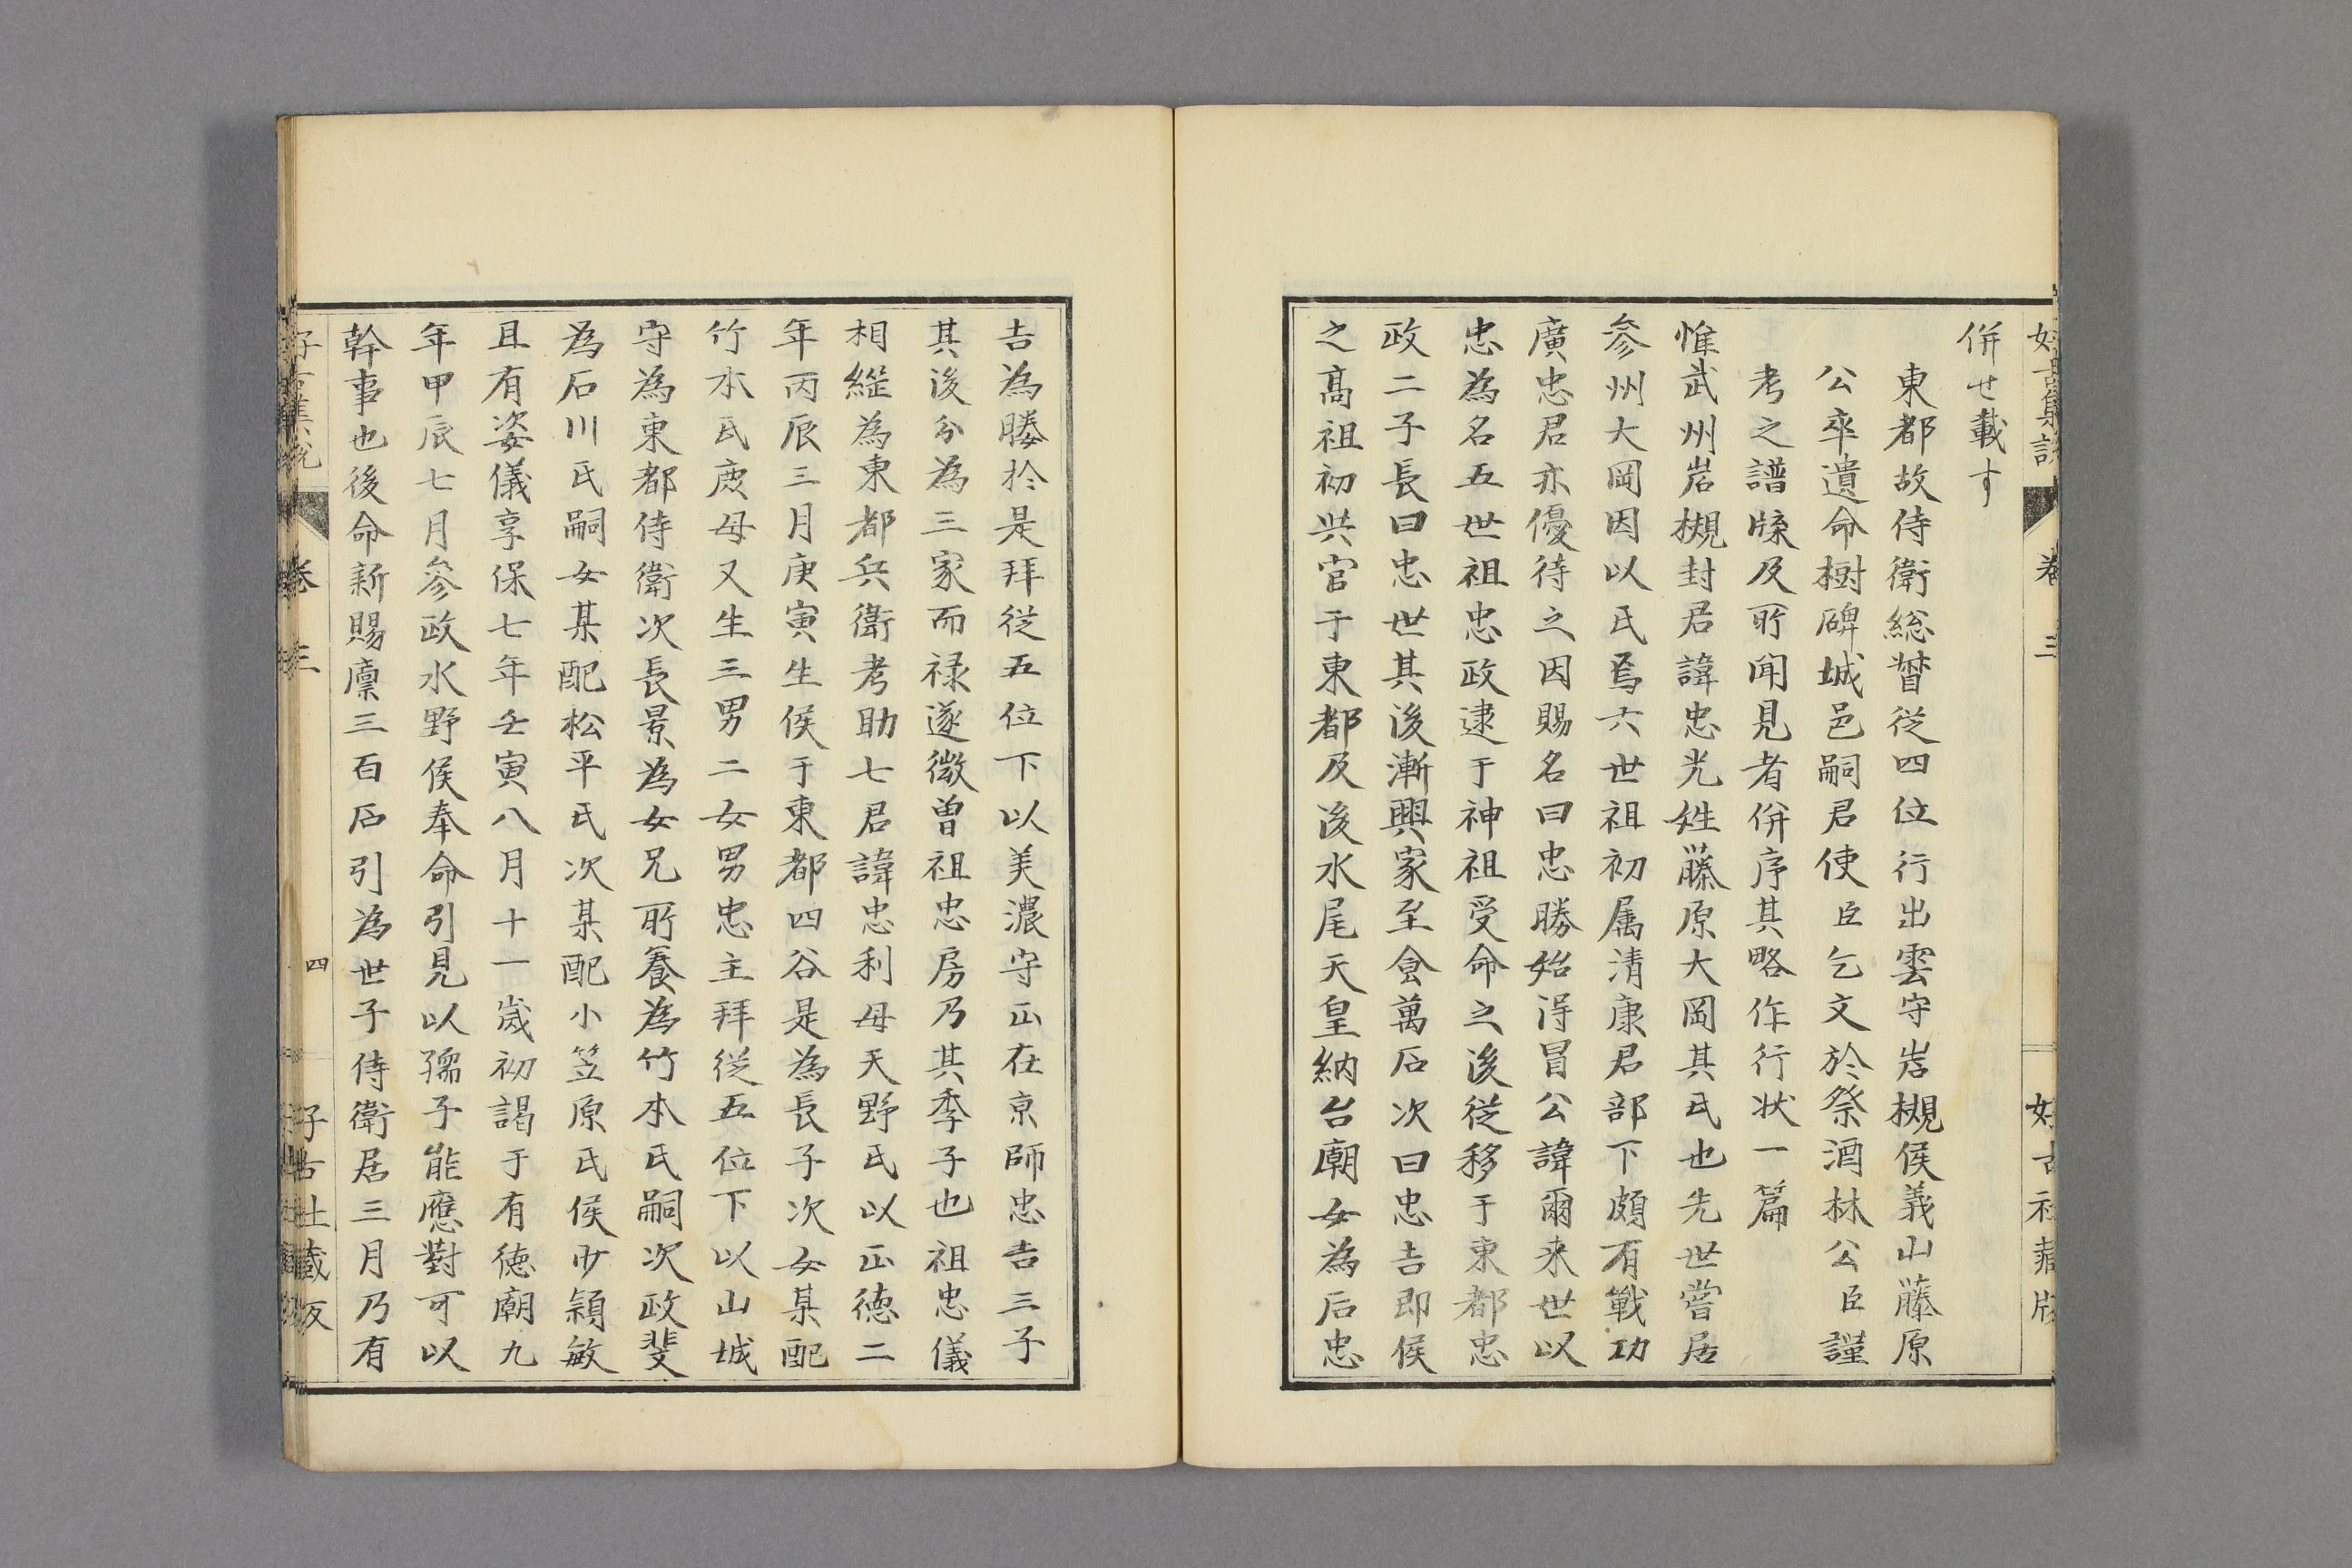 好古集説
卷三
好古社藏版
併せ載す
東都故侍衛総督従四位行出雲守岩槻侯義山藤原
公卒遺命樹碑城邑嗣君使臣乞文於祭酒林公臣謹
考之譜牒及所聞見者併序其略作行状一篇
惟武州岩槻封君諱忠光姓藤原大岡其氏也先世嘗居
参州大岡因以氏焉六世祖初属清康君部下頗有戦功
廣忠君亦優待之因賜名曰忠勝始得冒公諱爾来世以
忠為名五世祖忠政逮于神祖受命之後従移于東都忠
政二子長曰忠世其後漸興家至食萬石次曰忠吉即侯
之高祖初共官于東都及後水尾天皇納台廟女為后忠
吉為媵於是拜従五位下以美濃守正在京師忠吉三子
其後分為三家而禄遂微曽祖忠房乃其季子也祖忠儀
相継為東都兵衛考助七君諱忠利母天野氏以正徳二
年丙辰三月庚寅生侯于東都四谷是為長子次女某配
竹本氏庶母又生三男二女男忠主拜従五位下以山城
守為東都侍衛次長景為女兄所養為竹本氏嗣次政斐
為石川氏嗣女某配松平氏次某配小笠原氏侯少穎敏
且有姿儀享保七年壬寅八月十一歳初謁于有徳廟九
年甲辰七月参政水野侯奉命引見以孺子能應對可以
幹事也後命新賜廪三百石引為世子侍衛居三月乃有
卷三
四